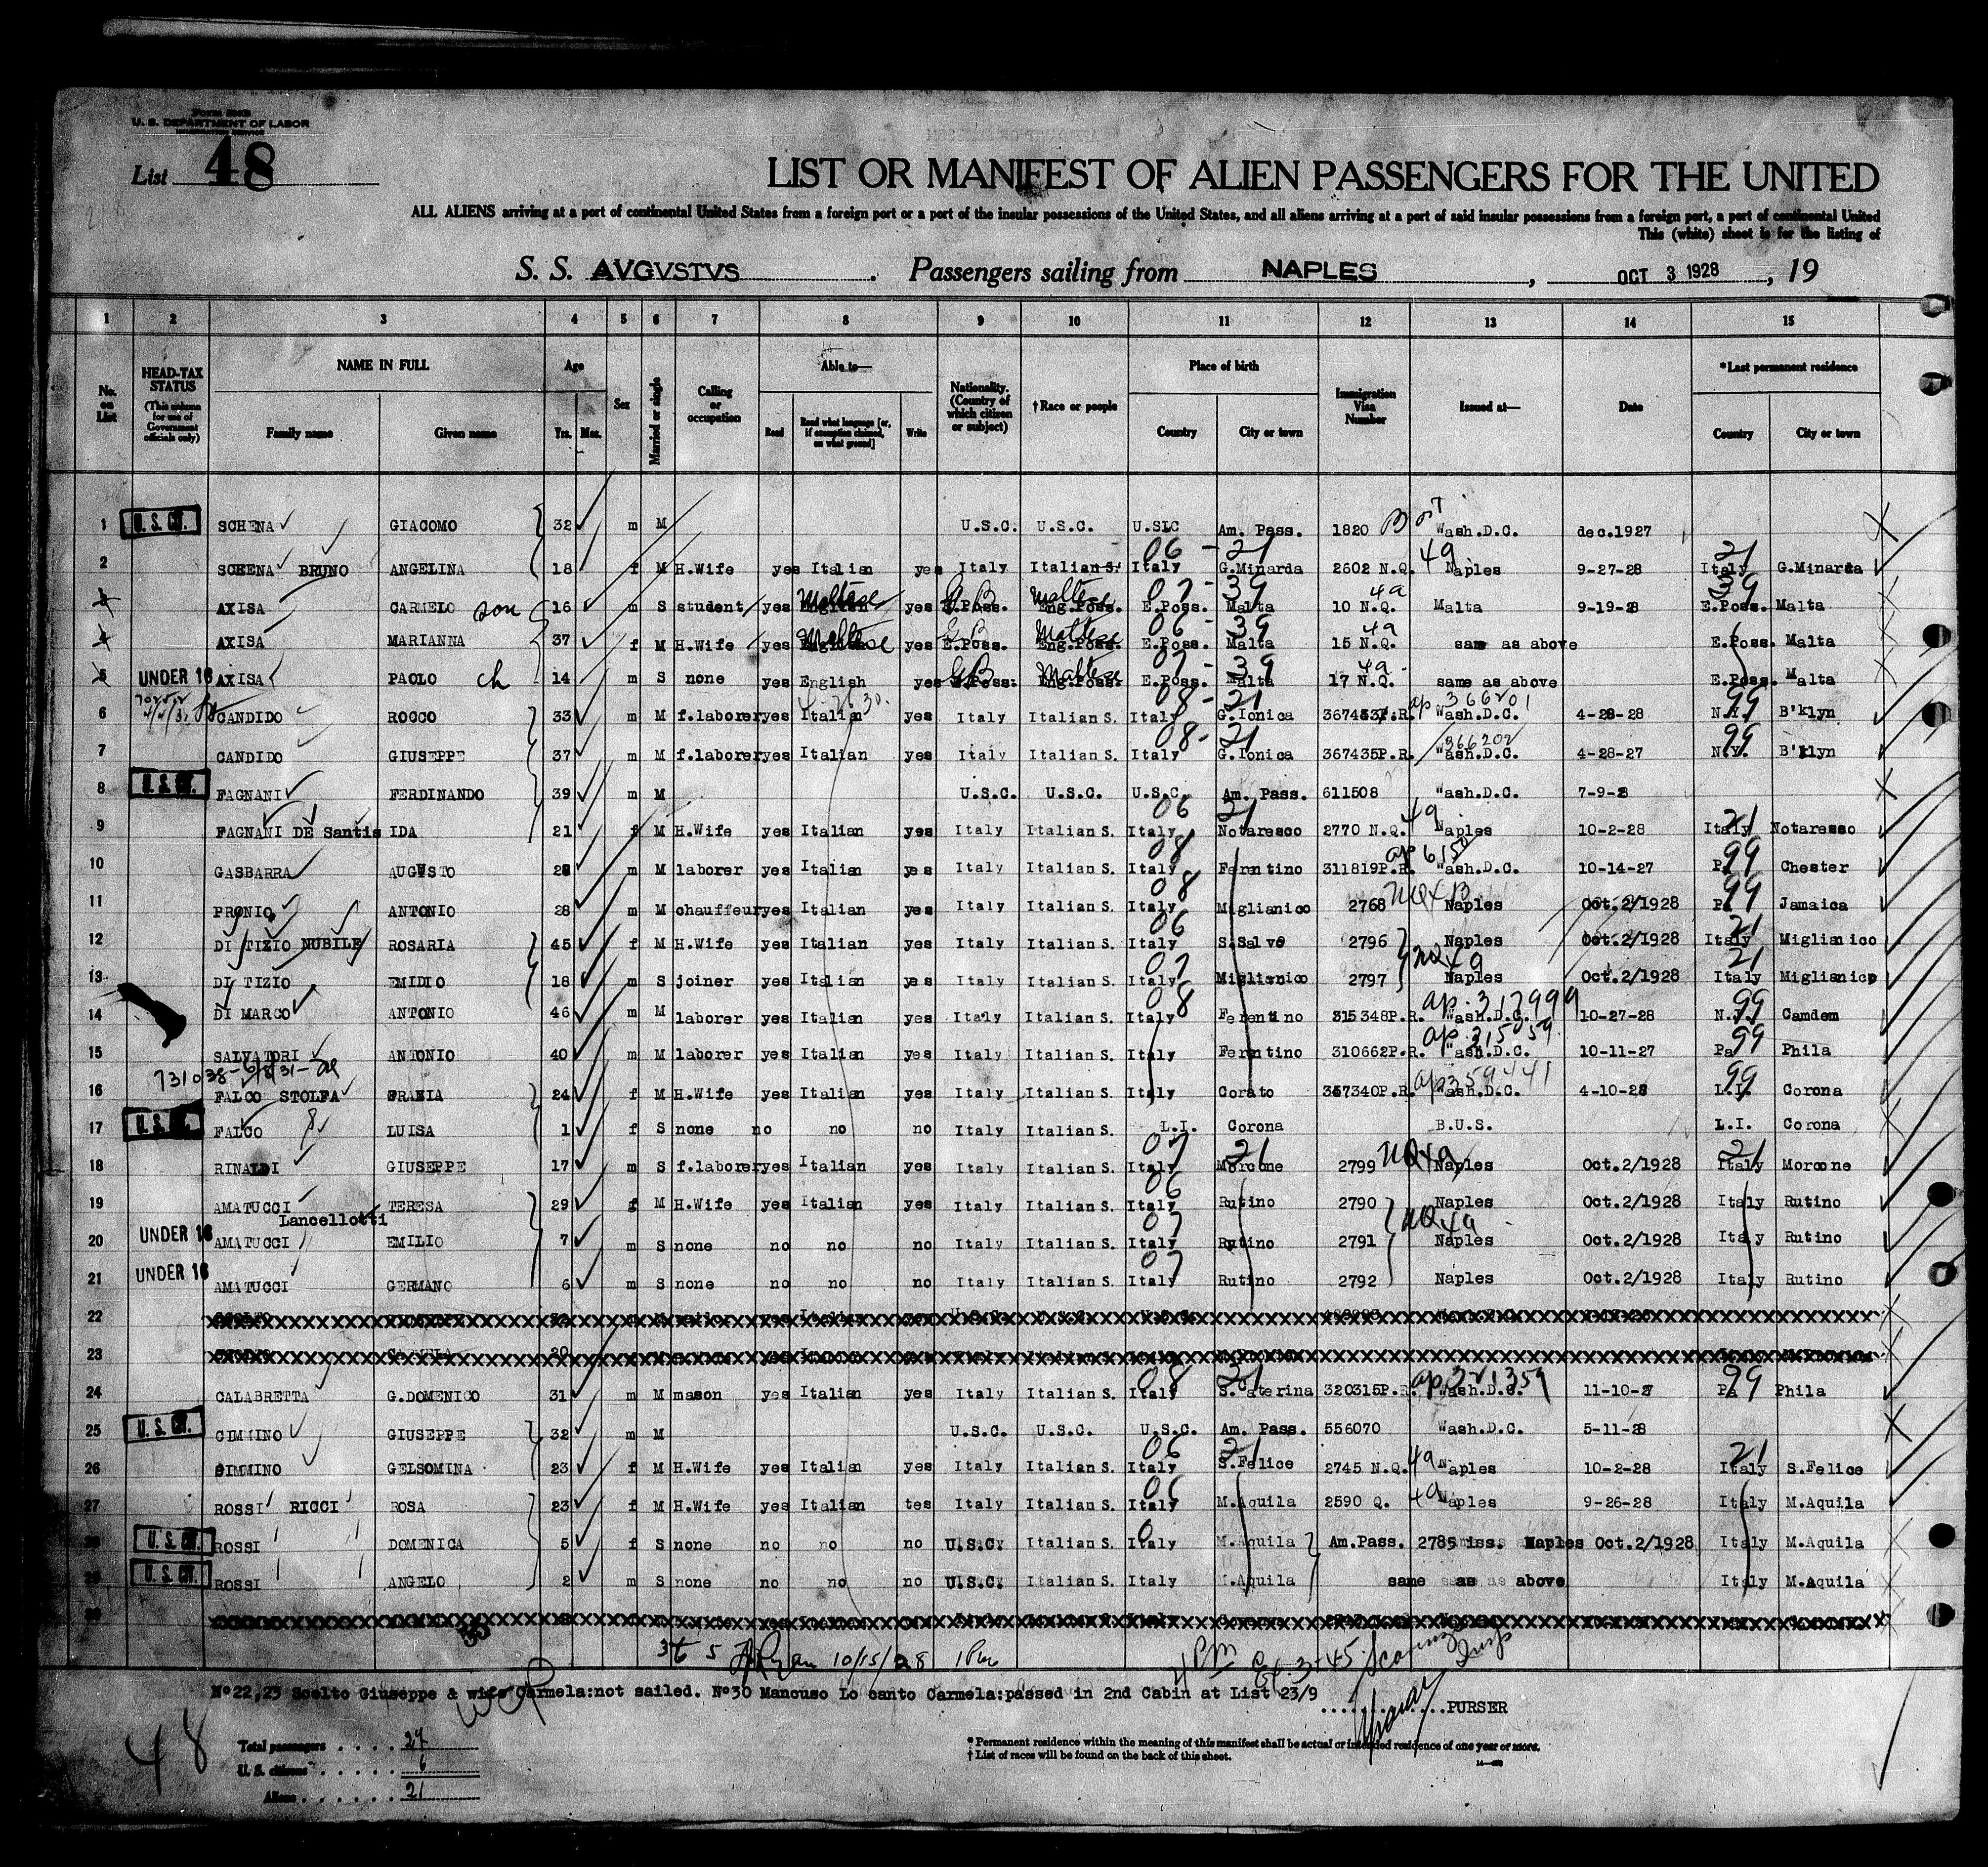 Form 500B
U. S. DEPARTMENT OF LABOR
List 48
LIST OR MANIFEST OF ALIEN PASSENGERS FOR THE UNITED
ALL ALIENS arriving at a port of continental United States from a foreign port or a port of the insular possessions of the United States, and all aliens arriving at a port of said insular possessions from a foreign port, a port of continental United
This (white) sheet is for the listing of
S. S. AVGVSTVS . Passengers sailing from NAPLES , OCT 3 1928 , 19
1 2 3 4 5 6 7 8 9 10 11 12 13 14 15
No. on List HEAD-TAX STATUS (This column for use of Government officials only) NAME IN FULL Family name Given name Age Yrs. Mos. Sex Married or single Calling or occupation Able to— Read Read what language [or, if exemption claimed, on what ground] Write Nationality. (Country of which citizen or subject) †Race or people Place of birth Country City or town Immigration Visa Number Issued at— Date *Last permanent residence Country City or town
1 U.S.CIT. SCHENA GIACOMO 32 m M U.S.C. U.S.C. Am. Pass. 1820 Wash.D.C. dec.1927
2 SCHENA BRUNO ANGELINA 18 f M H.Wife yes Italian yes Italy Italian S. Italy 06 - 21 G.Minarda 2602 N.Q. 49 Naples 9-27-28 Italy 21 G.Minarda
3 AXISA CARMELO son 16 m S student yes Maltese yes E.Poss. GB Eng.Poss. Maltese E.Poss. 07 - 39 Malta 10 N.Q. 49 Malta 9-19-28 E.Poss. 39 Malta
4 AXISA MARIANNA 37 f M H.Wife yes Maltese yes E.Poss. GB Eng.Poss. Maltese E.Poss. 06 - 39 Malta 15 N.Q. 49 same as above E.Poss. Malta
5 UNDER 16 AXISA PAOLO ch 14 m S none yes English yes E.Poss. GB Eng.Poss. Maltese E.Poss. 07 - 39 Malta 17 N.Q. 49 same as above E.Poss. Malta
6 CANDIDO ROCCO 33 m M f.laborer yes Italian yes Italy Italian S. Italy 08 - 21 G.Ionica P.R. ap 366201 Wash.D.C. 4-28-28 99 B'klyn
7 CANDIDO GIUSEPPE 37 m M f.laborer yes Italian yes Italy Italian S. Italy 08 - 21 G.Ionica 367435P.R. 366202 Wash.D.C. 4-28-27 N.Y. 99 B'klyn
8 U.S.CIT. FAGNANI FERDINANDO 39 m M U.S.C. U.S.C. U.S.C. Am. Pass. 611508 Wash.D.C. 7-9-28
9 FAGNANI DE Santis IDA 21 f M H.Wife yes Italian yes Italy Italian S. Italy 06 21 Notaresco 2770 N.Q. 49 Naples 10-2-28 Italy 21 Notaresco
10 GASBARRA AUGUSTO 28 m M laborer yes Italian yes Italy Italian S. Italy 08 Ferentino 311819P.R. Wash.D.C. 10-14-27 Pa 99 Chester
11 PRONIO ANTONIO 28 m M chauffeur yes Italian yes Italy Italian S. Italy 08 Miglianico 2768 Naples Oct.2/1928 99 Jamaica
12 DI TIZIO NUBILE ROSARIA 45 f M H.Wife yes Italian yes Italy Italian S. Italy 06 S.Salvo 2796 Naples Oct.2/1928 Italy 21 Miglianico
13 DI TIZIO EMIDIO 18 m S joiner yes Italian yes Italy Italian S. Italy 07 Miglianico 2797 NQ 49 Naples Oct.2/1928 Italy 21 Miglianico
14 DI MARCO ANTONIO 46 m M laborer yes Italian yes Italy Italian S. Italy 08 Ferentino 315348P.R. ap. 317999 Wash.D.C. 10-27-28 N.J. 99 Camdem
15 SALVATORI ANTONIO 40 m M laborer yes Italian yes Italy Italian S. Italy Ferentino 310662P.R. ap. 315059 Wash.D.C. 10-11-27 Pa 99 Phila
16 FALCO STOLFA 24 f M H.Wife yes Italian yes Italy Italian S. Italy Corato 367340P.R. ap 359441 Wash.D.C. 4-10-28 L.I. 99 Corona
17 U.S.CIT. FALCO LUISA 1 f S none no no no Italy Italian S. L.I. Corona B.U.S. L.I. Corona
18 RINALDI GIUSEPPE 17 m S f.laborer yes Italian yes Italy Italian S. Italy 07 21 Morcone 2799 NQ 49 Naples Oct.2/1928 Italy 21 Morcone
19 AMATUCCI Lancellotti TERESA 29 f M H.Wife yes Italian yes Italy Italian S. Italy 06 Rutino 2790 Naples Oct.2/1928 Italy Rutino
20 UNDER 16 AMATUCCI EMILIO 7 m S none no no no Italy Italian S. Italy 07 Rutino 2791 NQ 49 Naples Oct.2/1928 Italy Rutino
21 UNDER 16 AMATUCCI GERMANO 6 m S none no no no Italy Italian S. Italy 07 Rutino 2792 Naples Oct.2/1928 Italy Rutino
22
23
24 CALABRETTA G.DOMENICO 31 m M mason yes Italian yes Italy Italian S. Italy 08 21 S.Caterina 320315P.R. ap 321359 Wash.D.C. 11-10-27 Pa 99 Phila
25 U.S.CIT. CIMMINO GIUSEPPE 32 m M U.S.C. U.S.C. U.S.C. Am. Pass. 556070 Wash.D.C. 5-11-28
26 CIMMINO GELSOMINA 23 f M H.Wife yes Italian yes Italy Italian S. Italy 06 21 S.Felice 2745 N.Q. 49 Naples 10-2-28 Italy 21 S.Felice
27 ROSSI RICCI ROSA 23 f M H.Wife yes Italian tes Italy Italian S. Italy 06 M.Aquila 2590 Q. 49 Naples 9-26-28 Italy M.Aquila
28 U.S.CIT. ROSSI DOMENICA 5 f S none no no no U.S.C. Italian S. Italy M.Aquila Am.Pass. 2785 iss. Naples Oct.2/1928 Italy M.Aquila
29 U.S.CIT. ROSSI ANGELO 2 m S none no no no U.S.C. Italian S. Italy M.Aquila same as above Italy M.Aquila
30
10/15/28
Nº22,23 Scelto Giuseppe & wife Carmela:not sailed. Nº30 Mancuso Lo canto Carmela:passed in 2nd Cabin at List 23/9
PURSER
48
Total passengers . . . . 27
U. S. citizens . . . . . 6
Aliens . . . . . . 21
* Permanent residence within the meaning of this manifest shall be actual or intended residence of one year or more.
† List of races will be found on the back of this sheet.